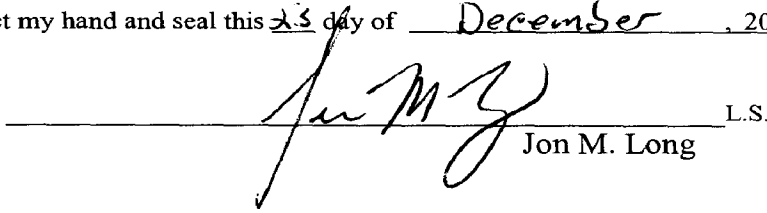 et my hand and seal this 23 day of December, 20
Jon M L L.S.
Jon M. Long